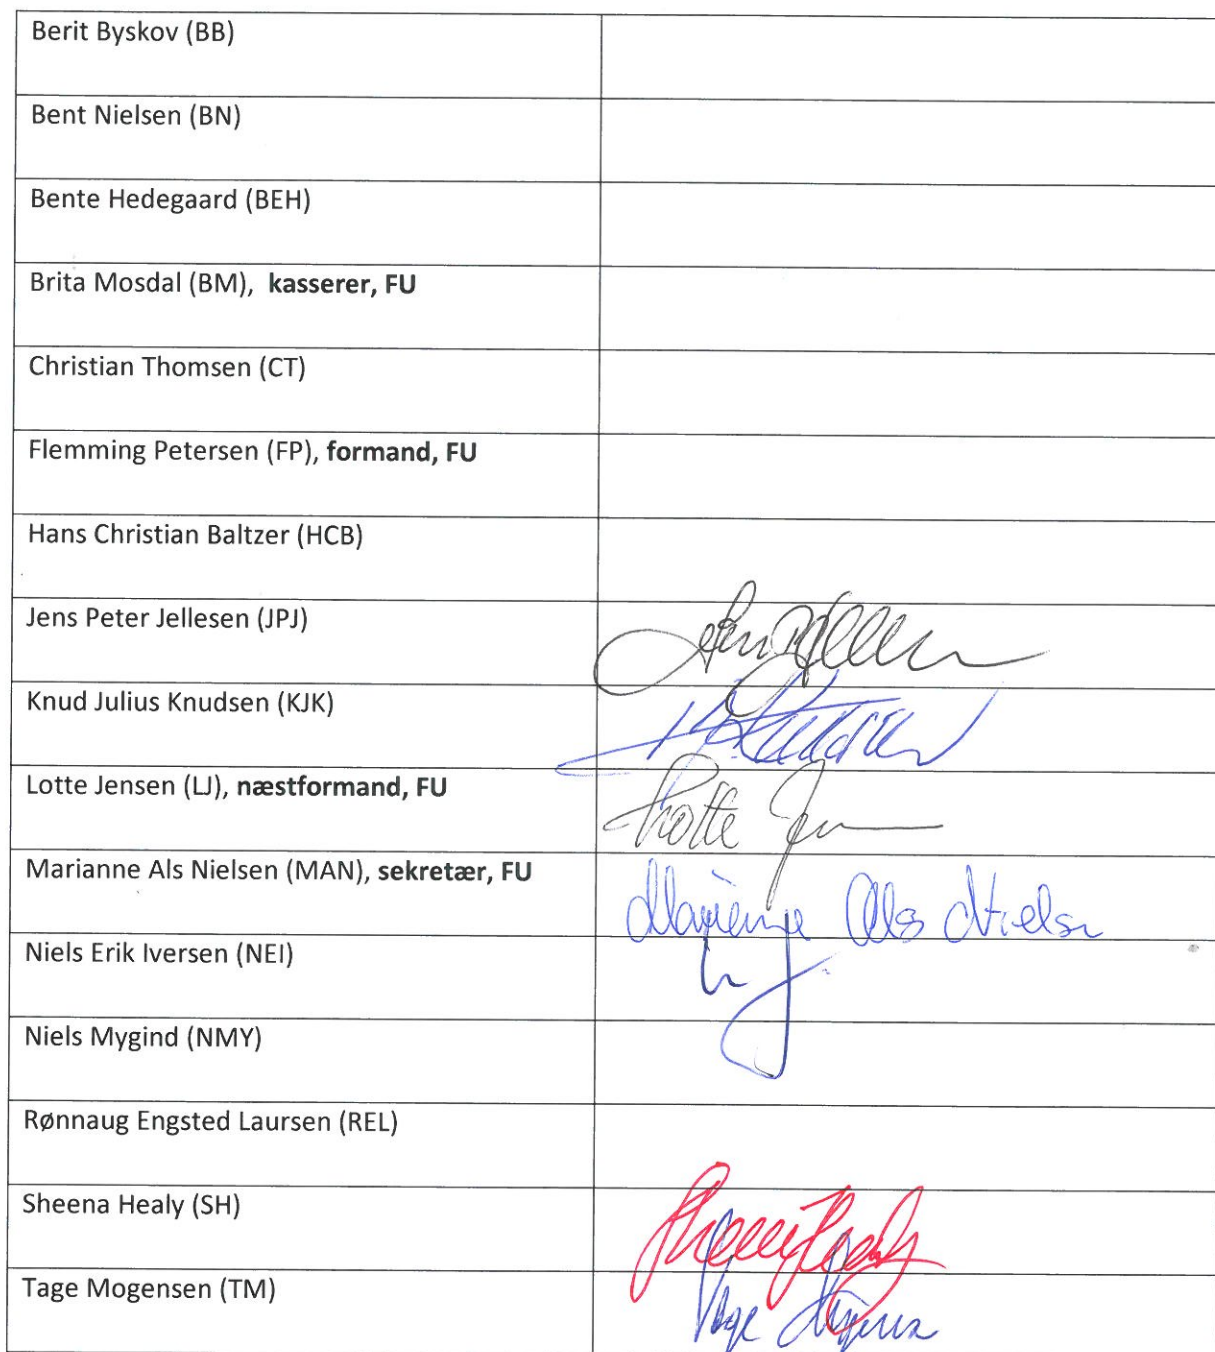 Berit Byskov (BB)
Bent Nielsen (BN)
Bente Hedegaard (BEH)
Brita Mosdal (BM), kasserer, FU
Christian Thomsen (CT)
Flemming Petersen (FP), formand, FU
Hans Christian Baltzer (HCB)
Jens Peter Jellesen (JPJ)
Knud Julius Knudsen (KJK)
Lotte Jensen (LJ), næstformand, FU
Lotte
Marianne Als Nielsen (MAN), sekretær, FU
Marianne Als Nielsen
Niels Erik Iversen (NEI)
Niels Mygind (NMY)
Rønnaug Engsted Laursen (REL)
Sheena Healy (SH)
Sheena Healy
Tage Mogensen (TM)
Tage